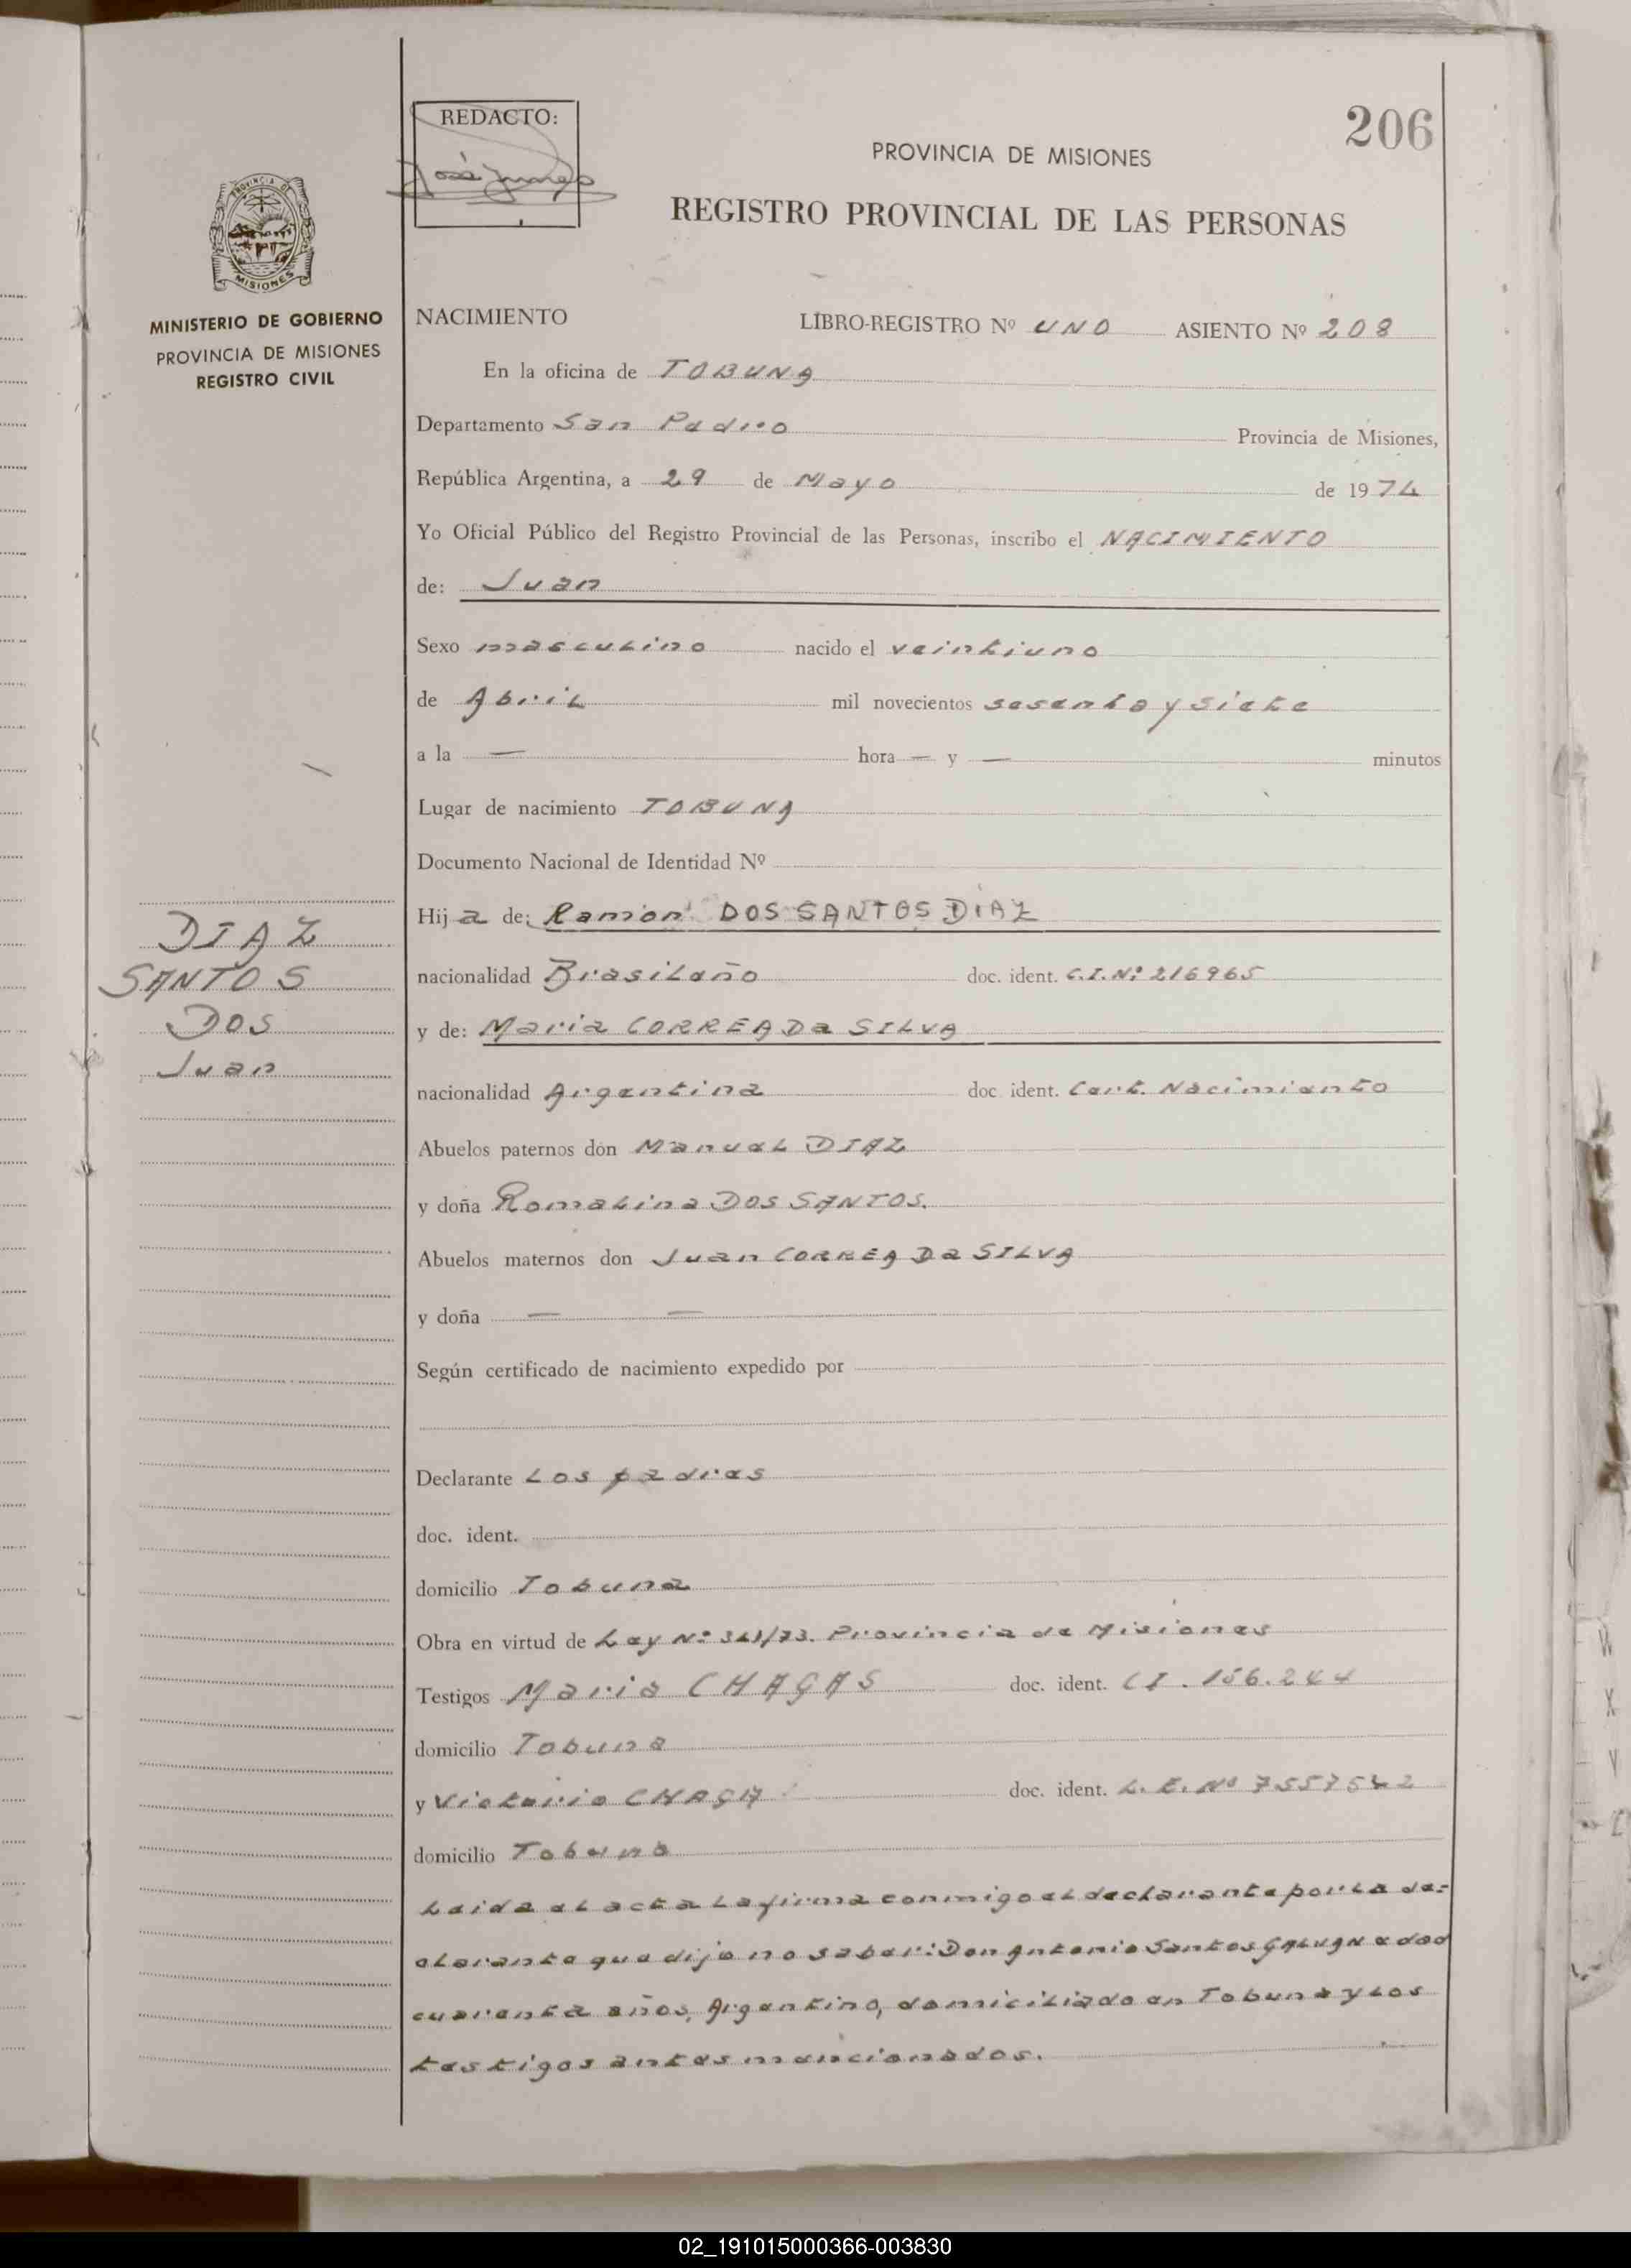 206
REDACTO:
PROVINCIA DE MISIONES
REGISTRO PROVINCIAL DE LAS PERSONAS
PROVINCIA DE
MISIONES
MINISTERIO DE GOBIERNO
PROVINCIA DE MISIONES
REGISTRO CIVIL
NACIMIENTO LIBRO-REGISTRO Nº UNO ASIENTO Nº 208
En la oficina de TOBUNA
Departamento San Pedro Provincia de Misiones,
República Argentina, a 29 de Mayo de 1974
Yo Oficial Público del Registro Provincial de las Personas, inscribo el NACIMIENTO
de: Juan
Sexo masculino nacido el veintiuno
de Abril mil novecientos sesenta y siete
a la — hora — y — minutos
Lugar de nacimiento TOBUNA
Documento Nacional de Identidad Nº
Hij a de: Ramon DOS SANTOS DIAZ
nacionalidad Brasileño doc. ident. C.I.Nº 216965
y de: Maria CORREA Da SILVA
nacionalidad Argentina doc. ident. Cert. Nacimiento
Abuelos paternos don Manuel DIAZ
y doña Romalina DOS SANTOS.
Abuelos maternos don Juan CORREA Da SILVA
y doña — —
Según certificado de nacimiento expedido por
Declarante Los padres
doc. ident.
domicilio Tobuna
Obra en virtud de Ley Nº /73. Provincia de Misiones
Testigos Maria CHAGAS doc. ident. CI. 156.244
domicilio Tobuna
y Victorio CHAGA doc. ident. L.E.Nº 7557542
domicilio Tobuna
Leida el acta la firma conmigo el declarante por la de=
clarante que dijo no saber: Don Antonio Santos de
cuarenta años, Argentino, domiciliado en Tobuna y los
testigos antes mencionados.
DIAZ
SANTOS
DOS
Juan
02_191015000366-003830